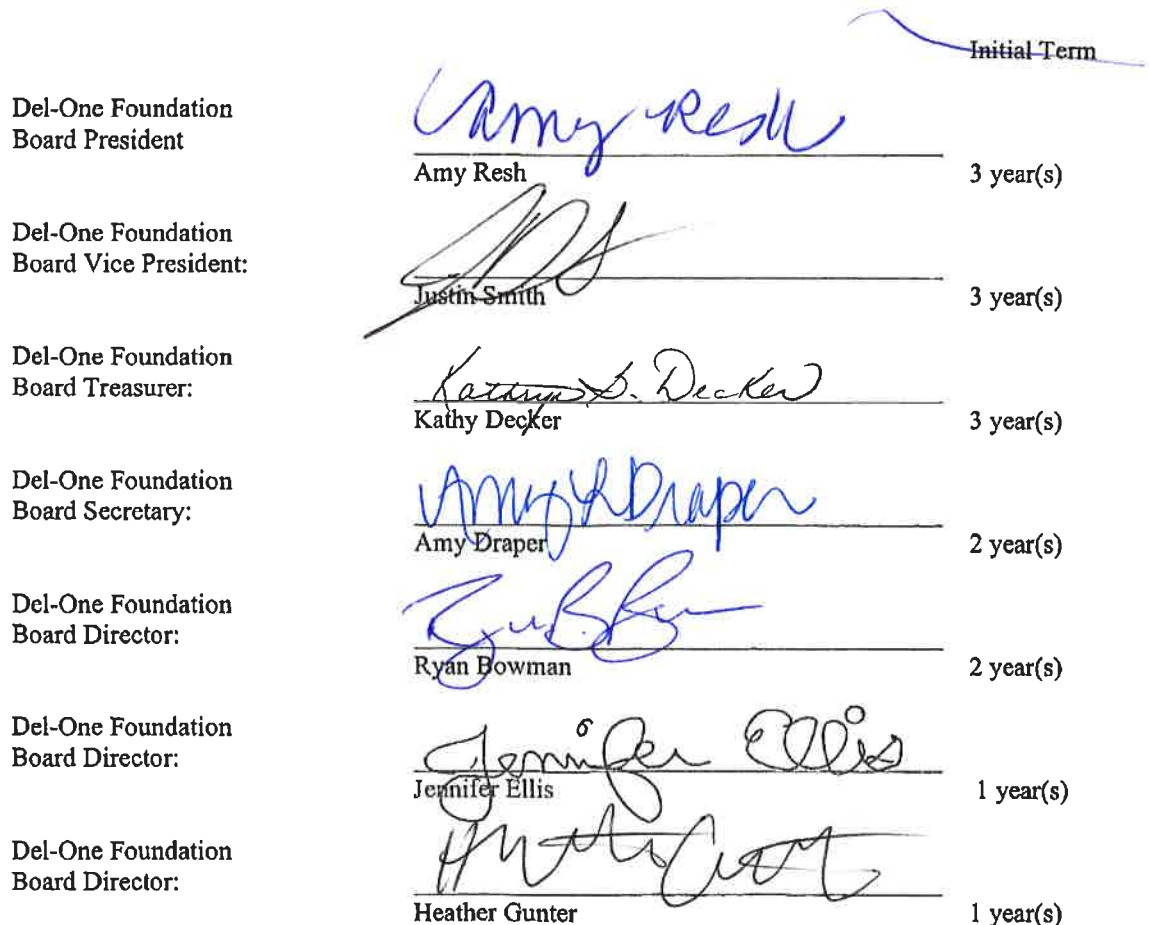 Initial Term
Del-One Foundation
Board President
Amy Resh
Amy Resh 3 year(s)
Del-One Foundation
Board Vice President:
Justin Smith 3 year(s)
Del-One Foundation
Board Treasurer:
Kathryn S. Decker
Kathy Decker 3 year(s)
Del-One Foundation
Board Secretary:
Amy L Draper
Amy Draper 2 year(s)
Del-One Foundation
Board Director:
Ryan Bowman 2 year(s)
Del-One Foundation
Board Director:
Jennifer Ellis
Jennifer Ellis 1 year(s)
Del-One Foundation
Board Director:
Heather Gunter 1 year(s)